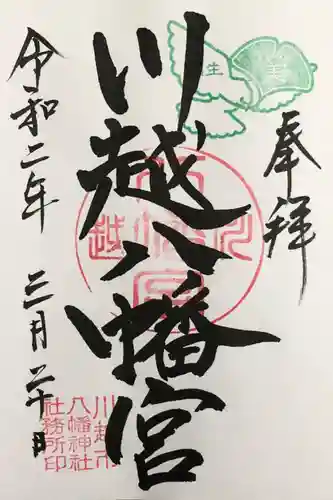 奉拝
川越八幡宮
令和二年 三月二十日
川越市
八幡神社
社務所印